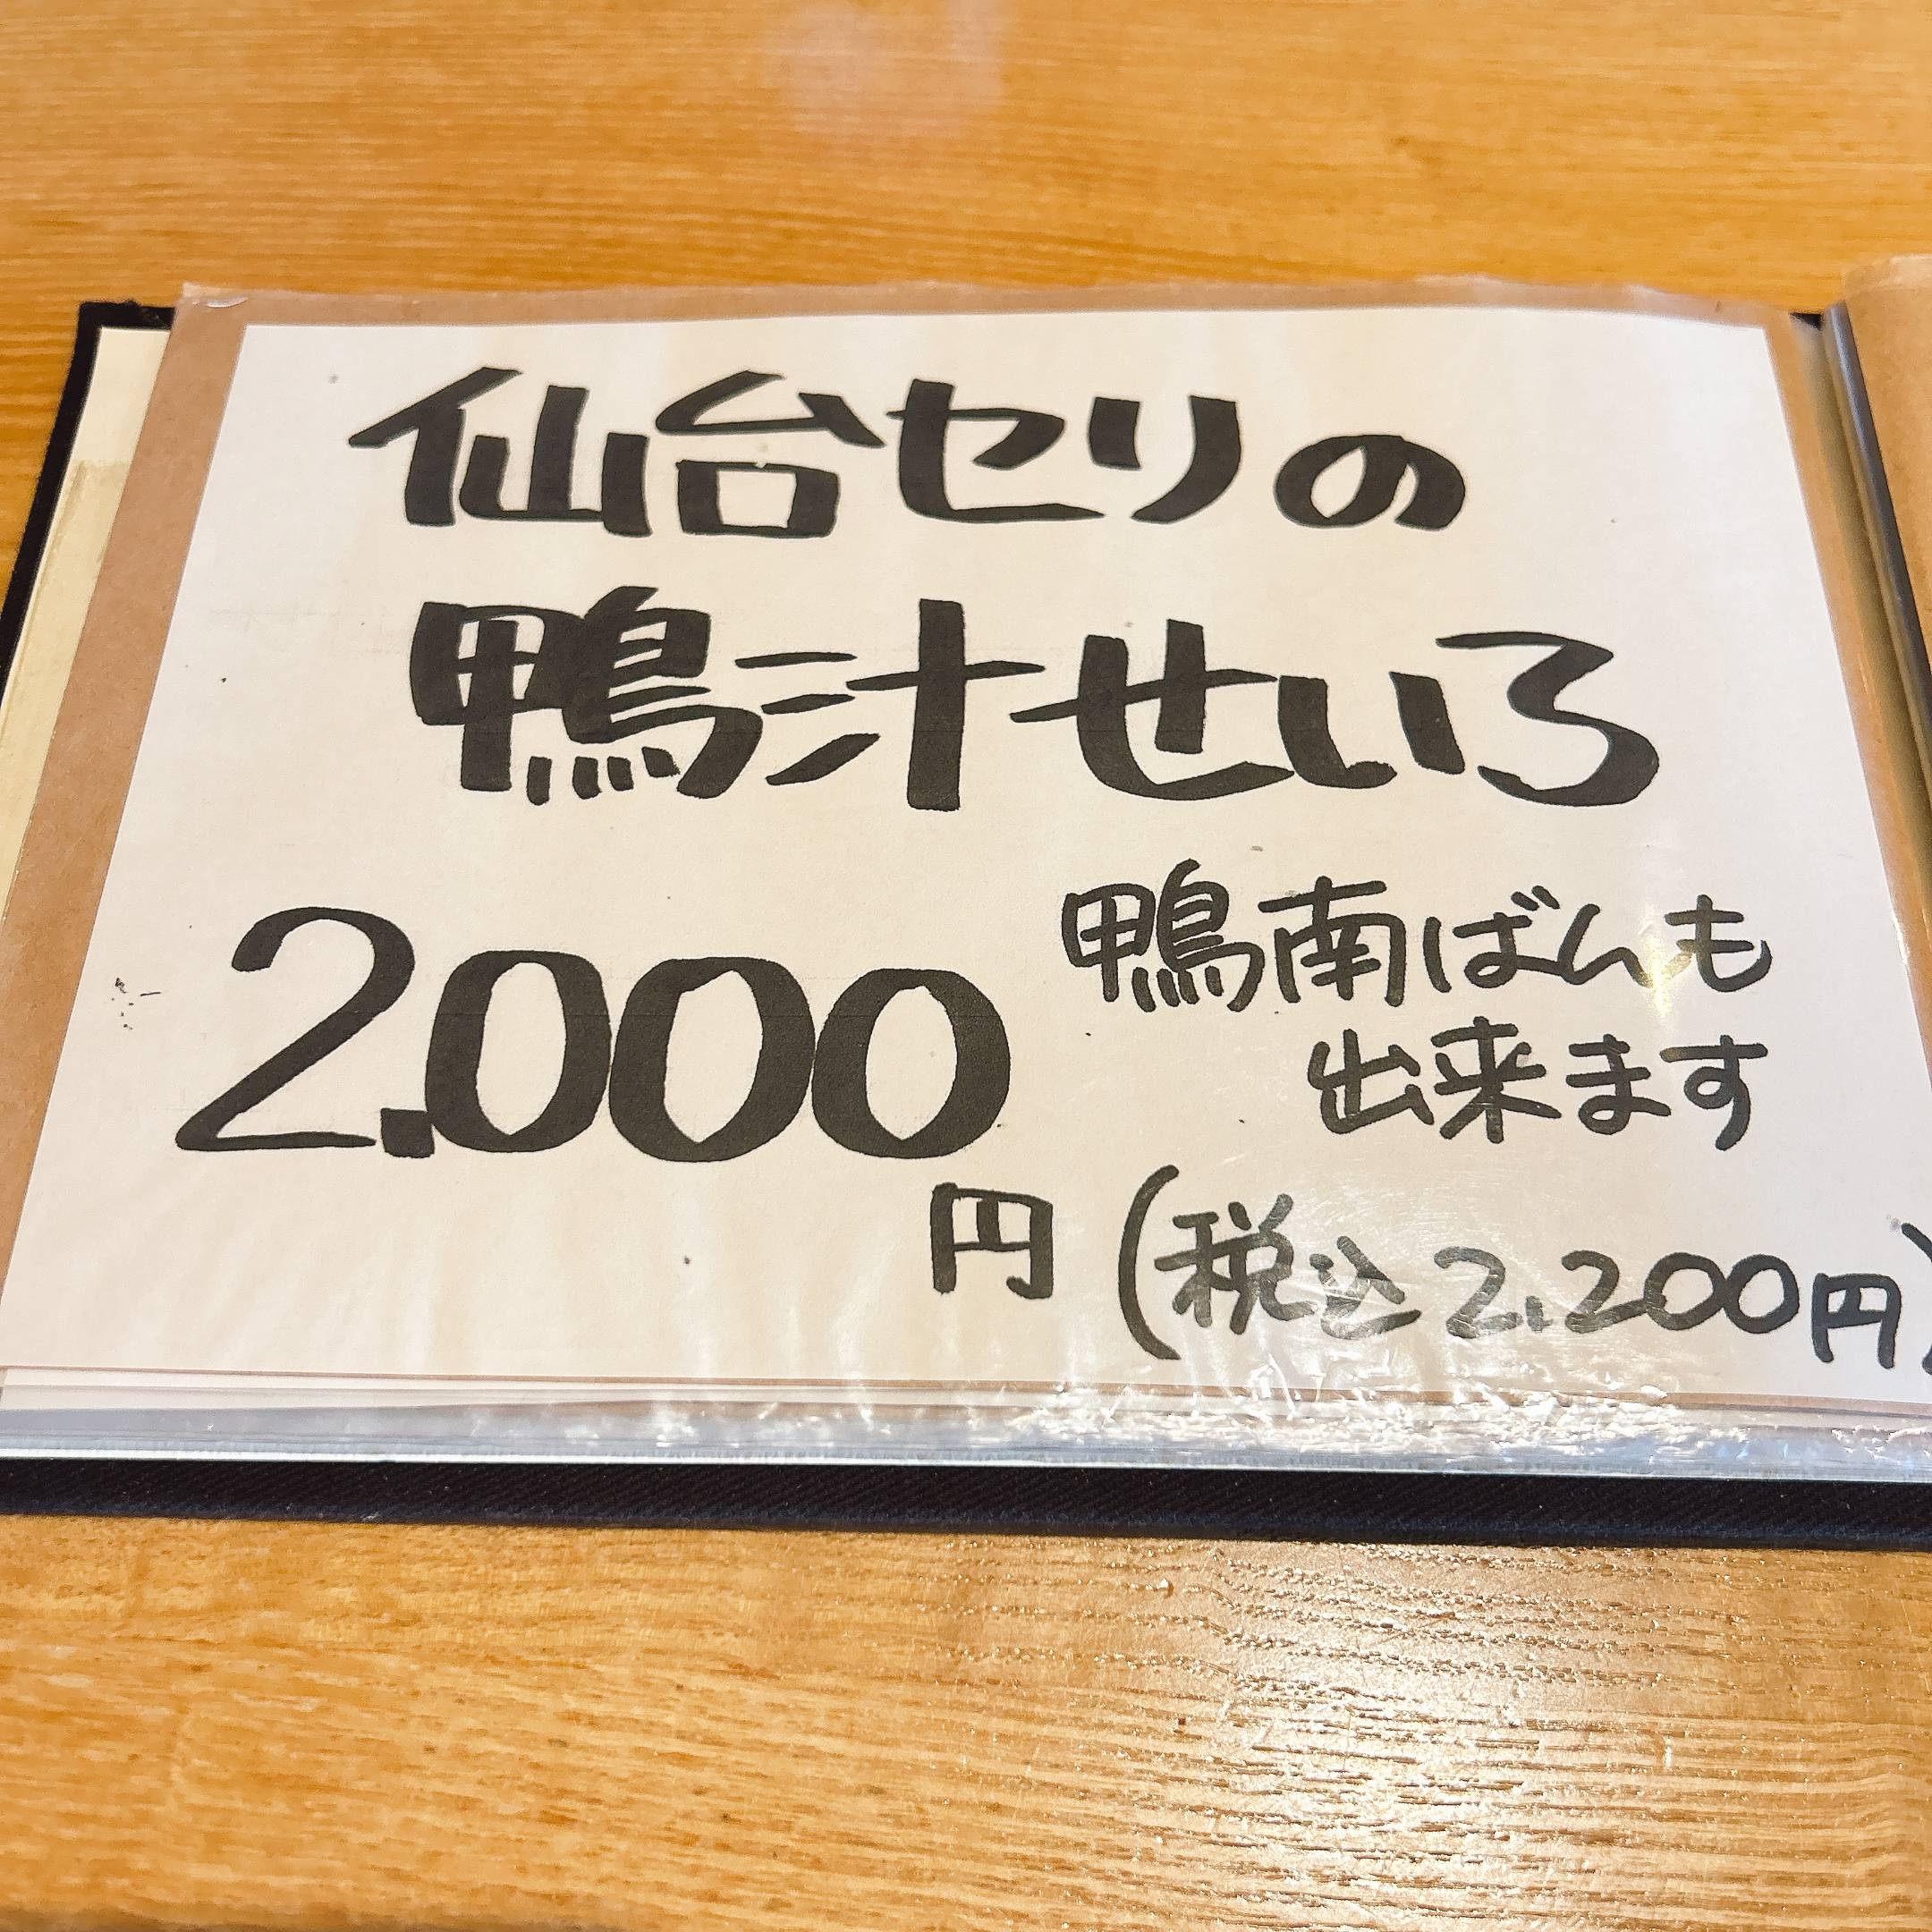 仙台セリの
鴨汁せいろ
2.000円
鴨南ばんも
出来ます
(税込2.200円)